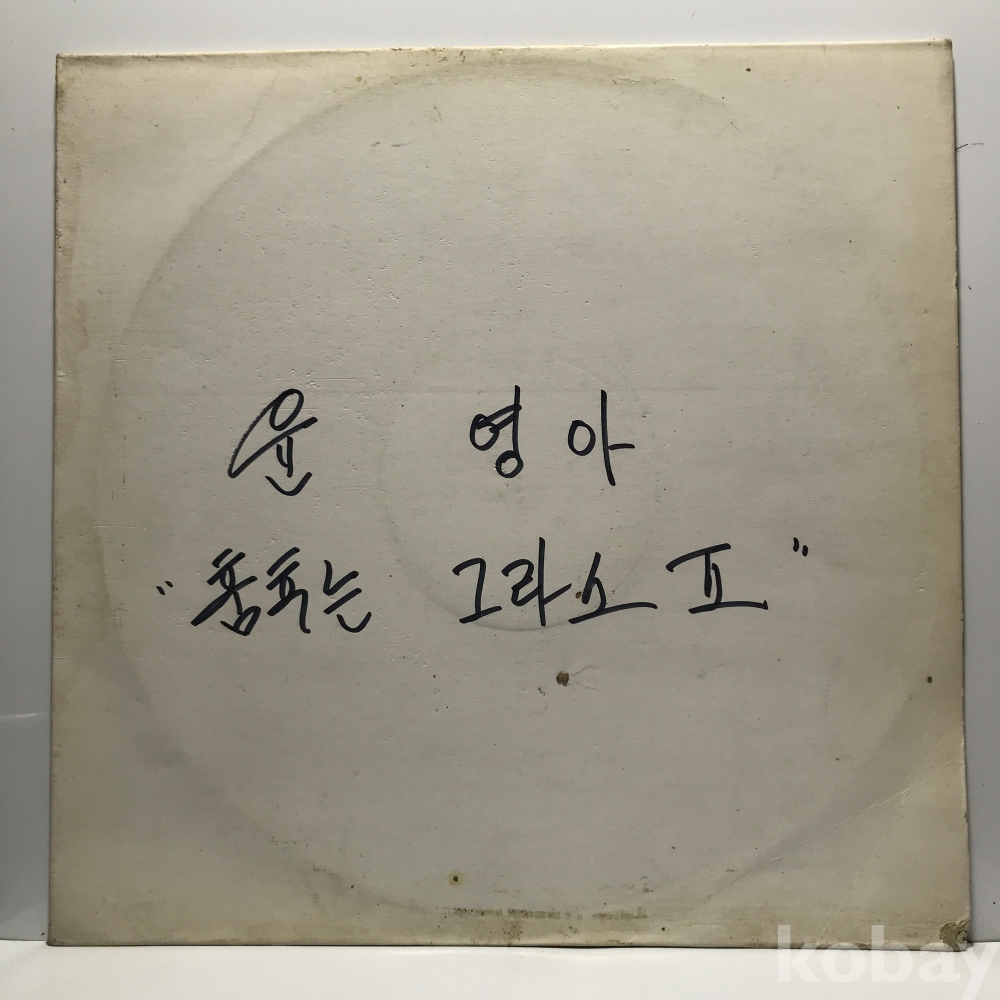 윤 영아
"춤추는 그라스 Ⅱ"
kobay